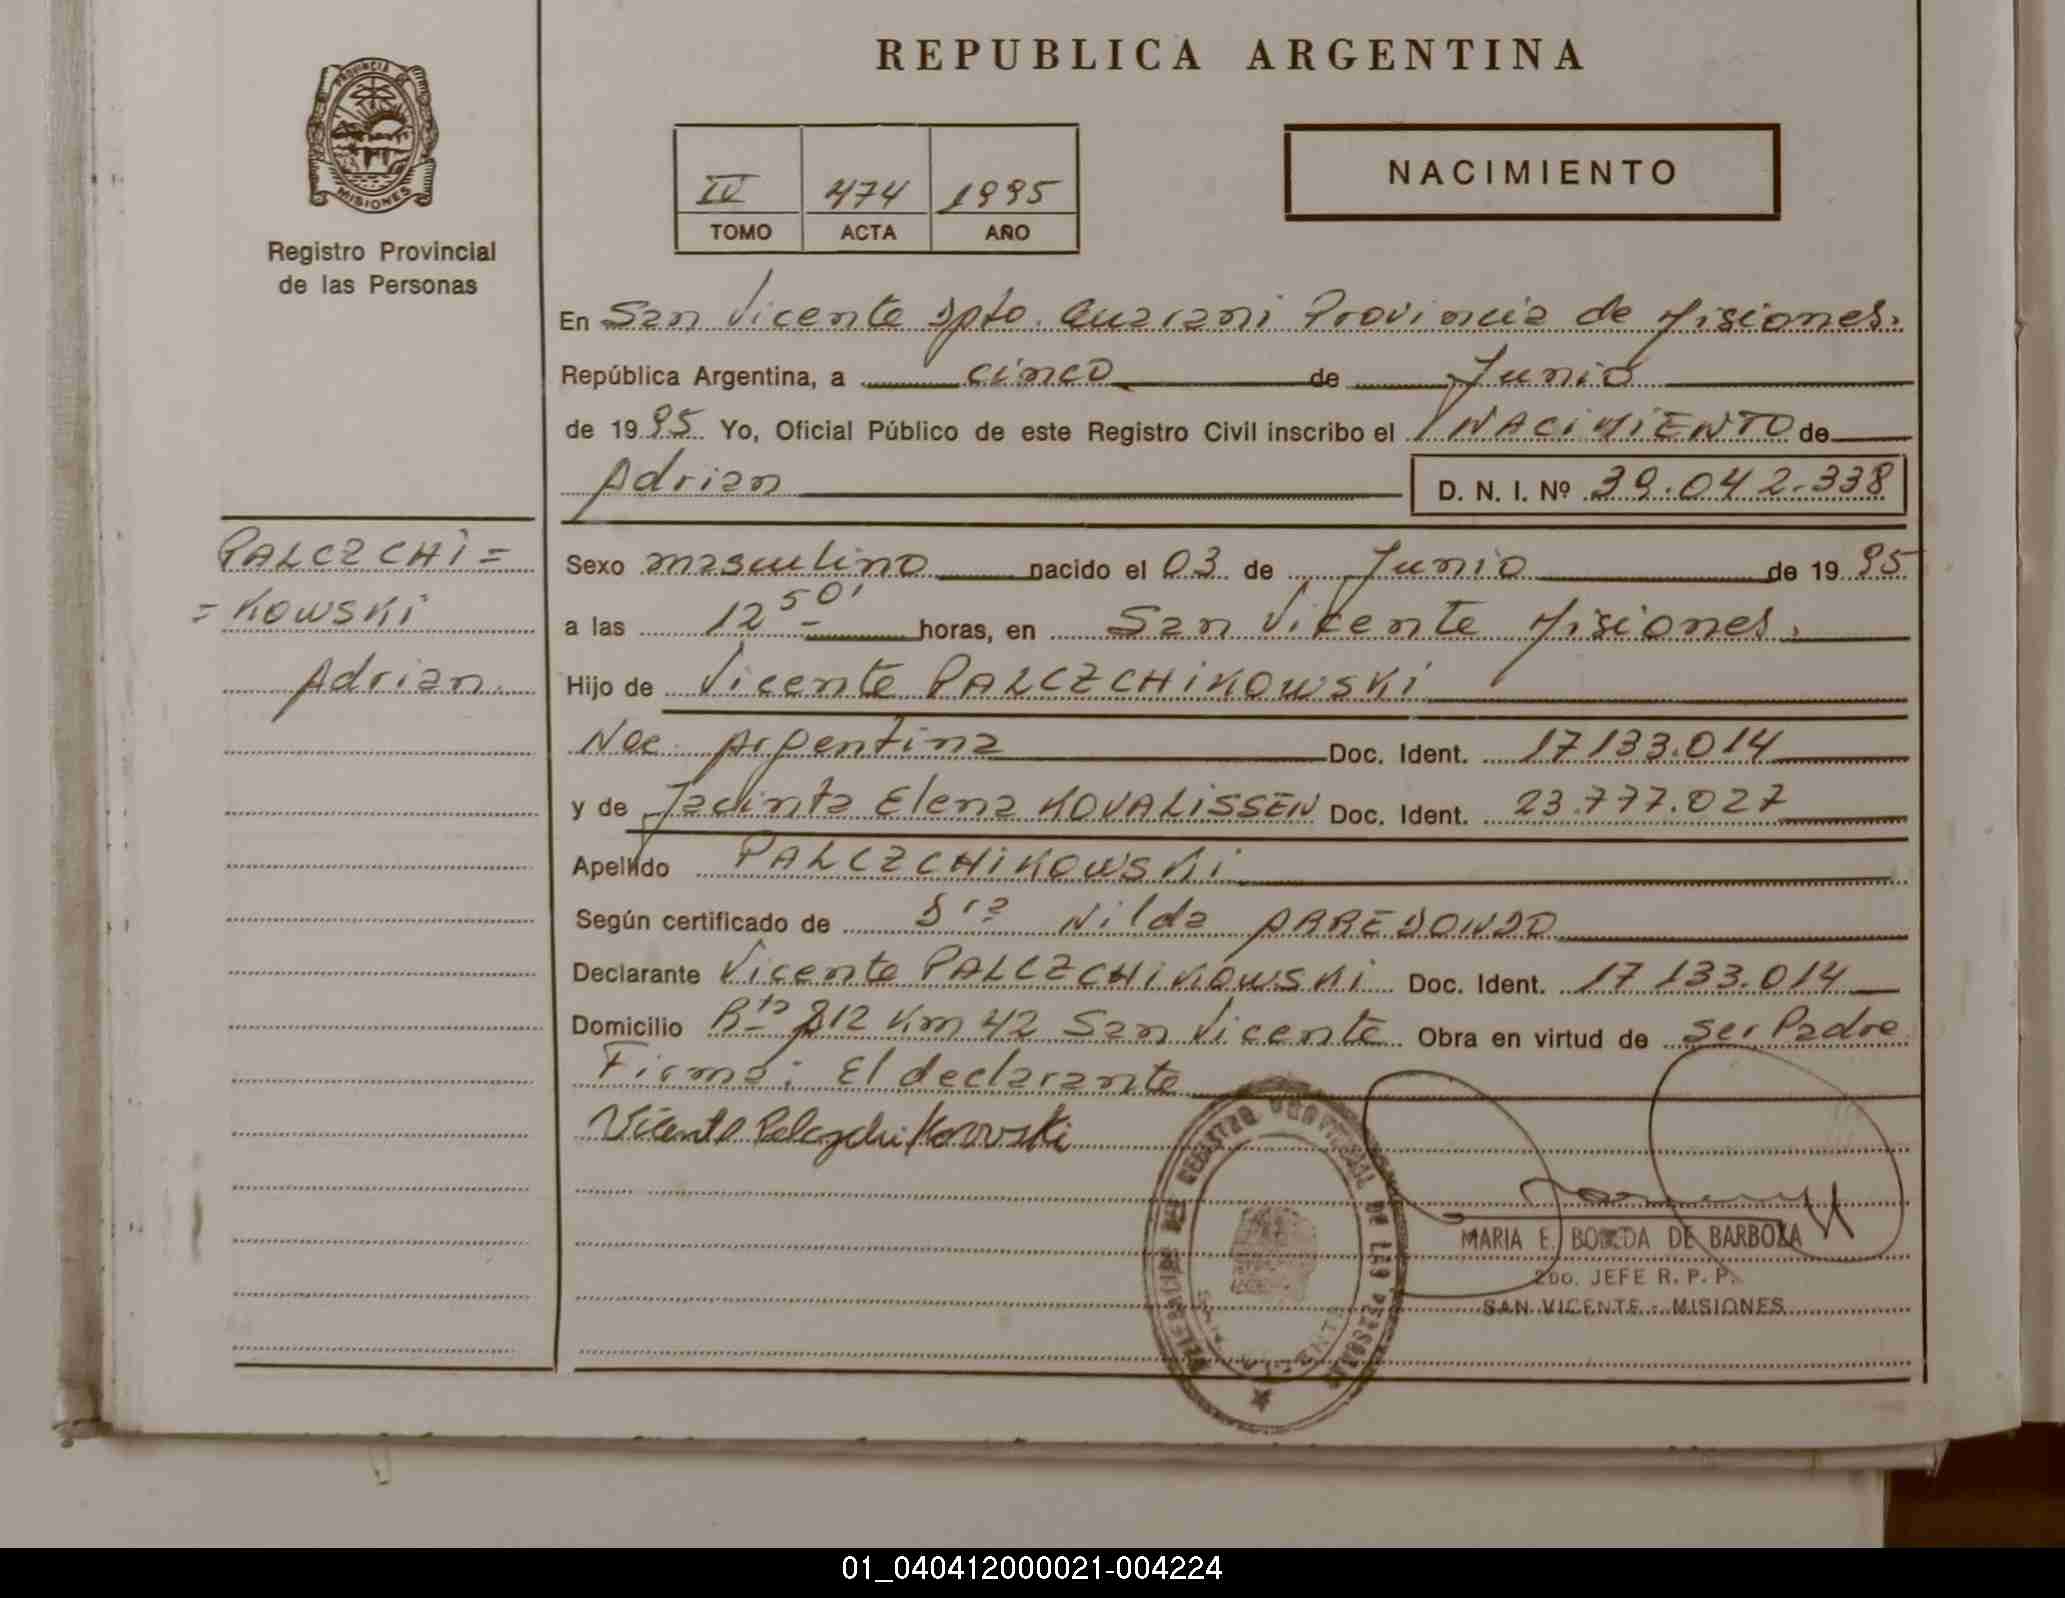 PROVINCIA DE
MISIONES
Registro Provincial
de las Personas
REPUBLICA ARGENTINA
IV 474 1995
TOMO ACTA AÑO
NACIMIENTO
En San Vicente Dpto. Guarani Provincia de Misiones.
República Argentina, a cinco de Junio
de 1995 Yo, Oficial Público de este Registro Civil inscribo el NACIMIENTO de
Adrian D. N. I. Nº 39.042.338
PALCZCHI=
=KOWSKI
Adrian.
Sexo masculino nacido el 03 de Junio de 1995
a las 12 50' horas, en San Vicente Misiones.
Hijo de Vicente PALCZCHIKOWSKI
Nac. Argentina Doc. Ident. 17133.014
y de Jacinta Elena KOVALISSEN Doc. Ident. 23.777.027
Apellido PALCZCHIKOWSKI
Según certificado de Sra Nilda ARREDONDO
Declarante Vicente PALCZCHIKOWSKI Doc. Ident. 17133.014
Domicilio Rta 212 Km 42 San Vicente Obra en virtud de ser Padre
Firma: El declarante
Vicente Palczchikowski
DELEGACION DEL REGISTRO PROVINCIAL DE LAS PERSONAS
SAN VICENTE
MARIA E. DE BARBOZA
2DO. JEFE R. P. P.
SAN VICENTE - MISIONES
01_040412000021-004224